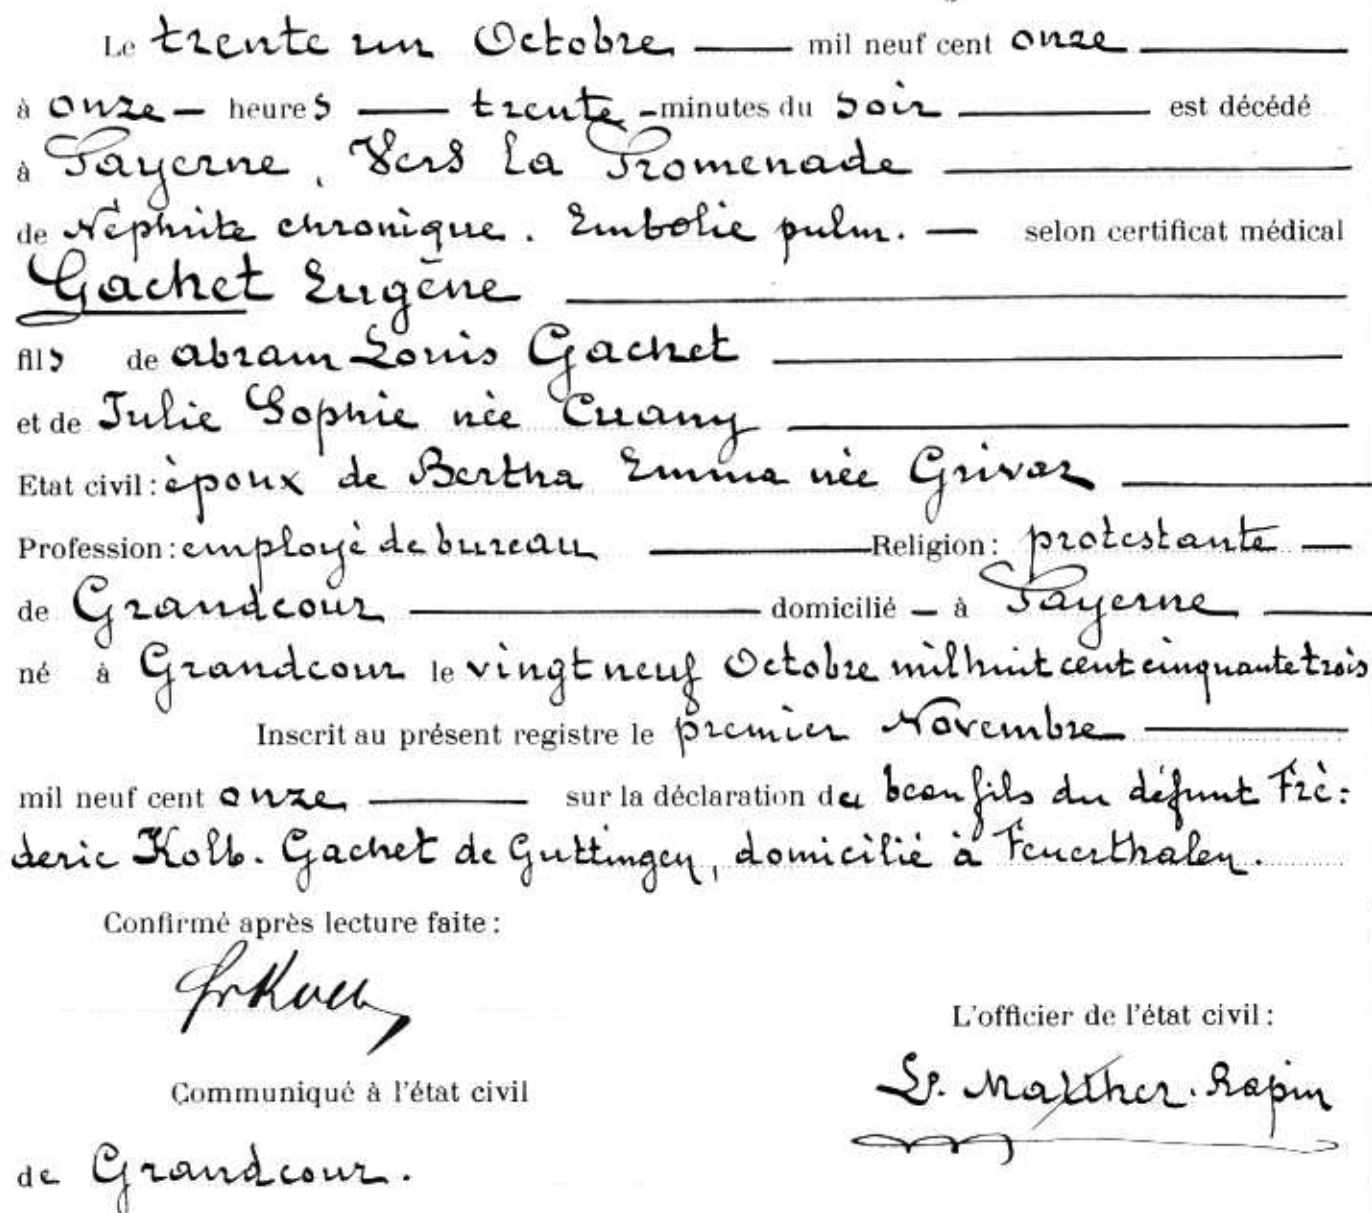 Le trente un Octobre — mil neuf cent onze —
à onze — heures — trente - minutes du soir — est décédé
à Payerne, Vers la Promenade —
de Néphrite chronique. Embolie pulm. — selon certificat médical
Gachet Eugène —
fils de Abram Louis Gachet —
et de Julie Sophie née Cuany —
Etat civil : époux de Bertha Emma née Grivaz —
Profession : employé de bureau — Religion : protestante —
de Grandcour — domicilié — à Payerne —
né à Grandcour le vingt neuf Octobre mil huit cent cinquante trois
Inscrit au présent registre le premier Novembre —
mil neuf cent onze — sur la déclaration du beau fils du défunt Fré-
deric Kolb-Gachet de Guttingen, domicilié à Feuerthalen.
Confirmé après lecture faite :
Fr Kolb
L'officier de l'état civil :
Communiqué à l'état civil
Rapin
de Grandcour.